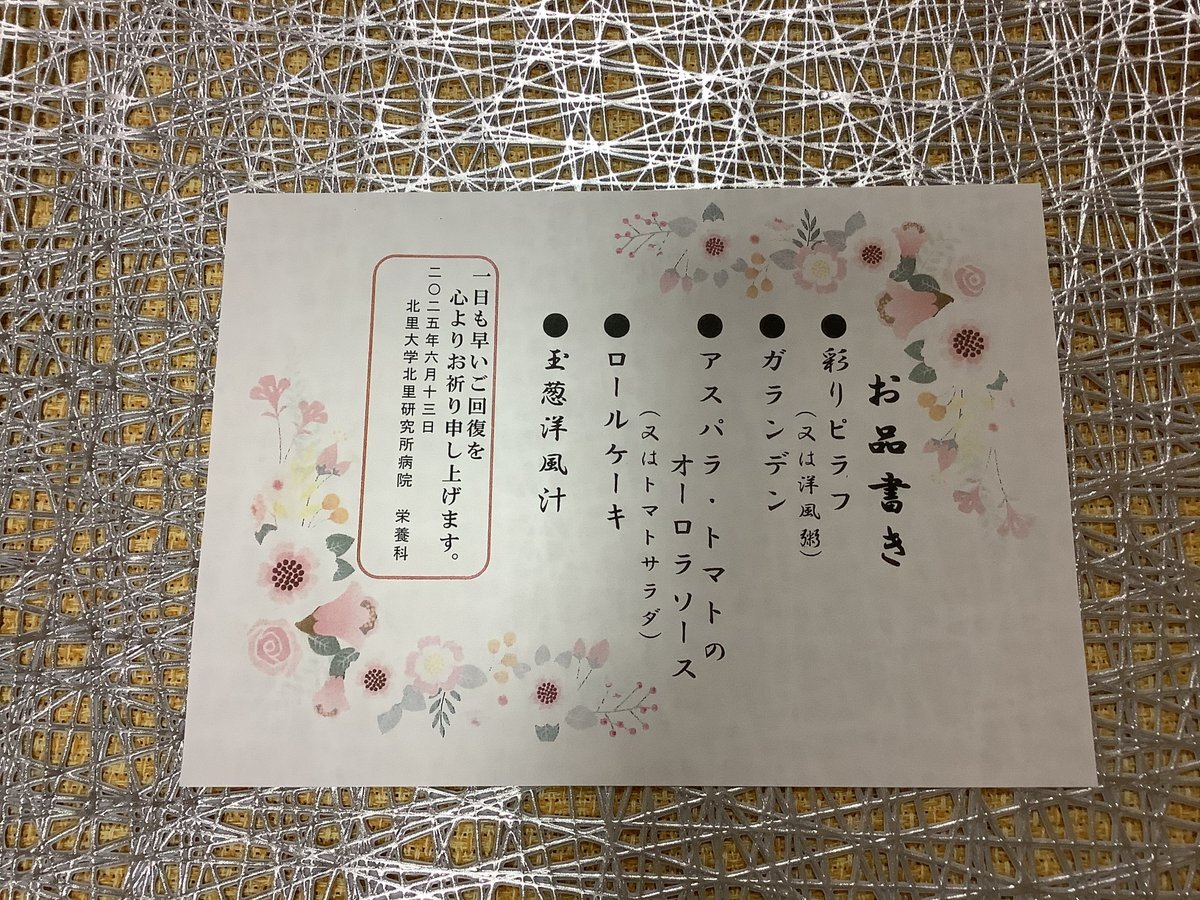 お品書き
●彩りピラフ
（又は洋風粥）
●ガランデン
●アスパラ・トマトの
オーロラソース
（又はトマトサラダ）
●ロールケーキ
●玉葱洋風汁
一日も早いご回復を
心よりお祈り申し上げます。
二〇二五年六月十三日
北里大学北里研究所病院　栄養科